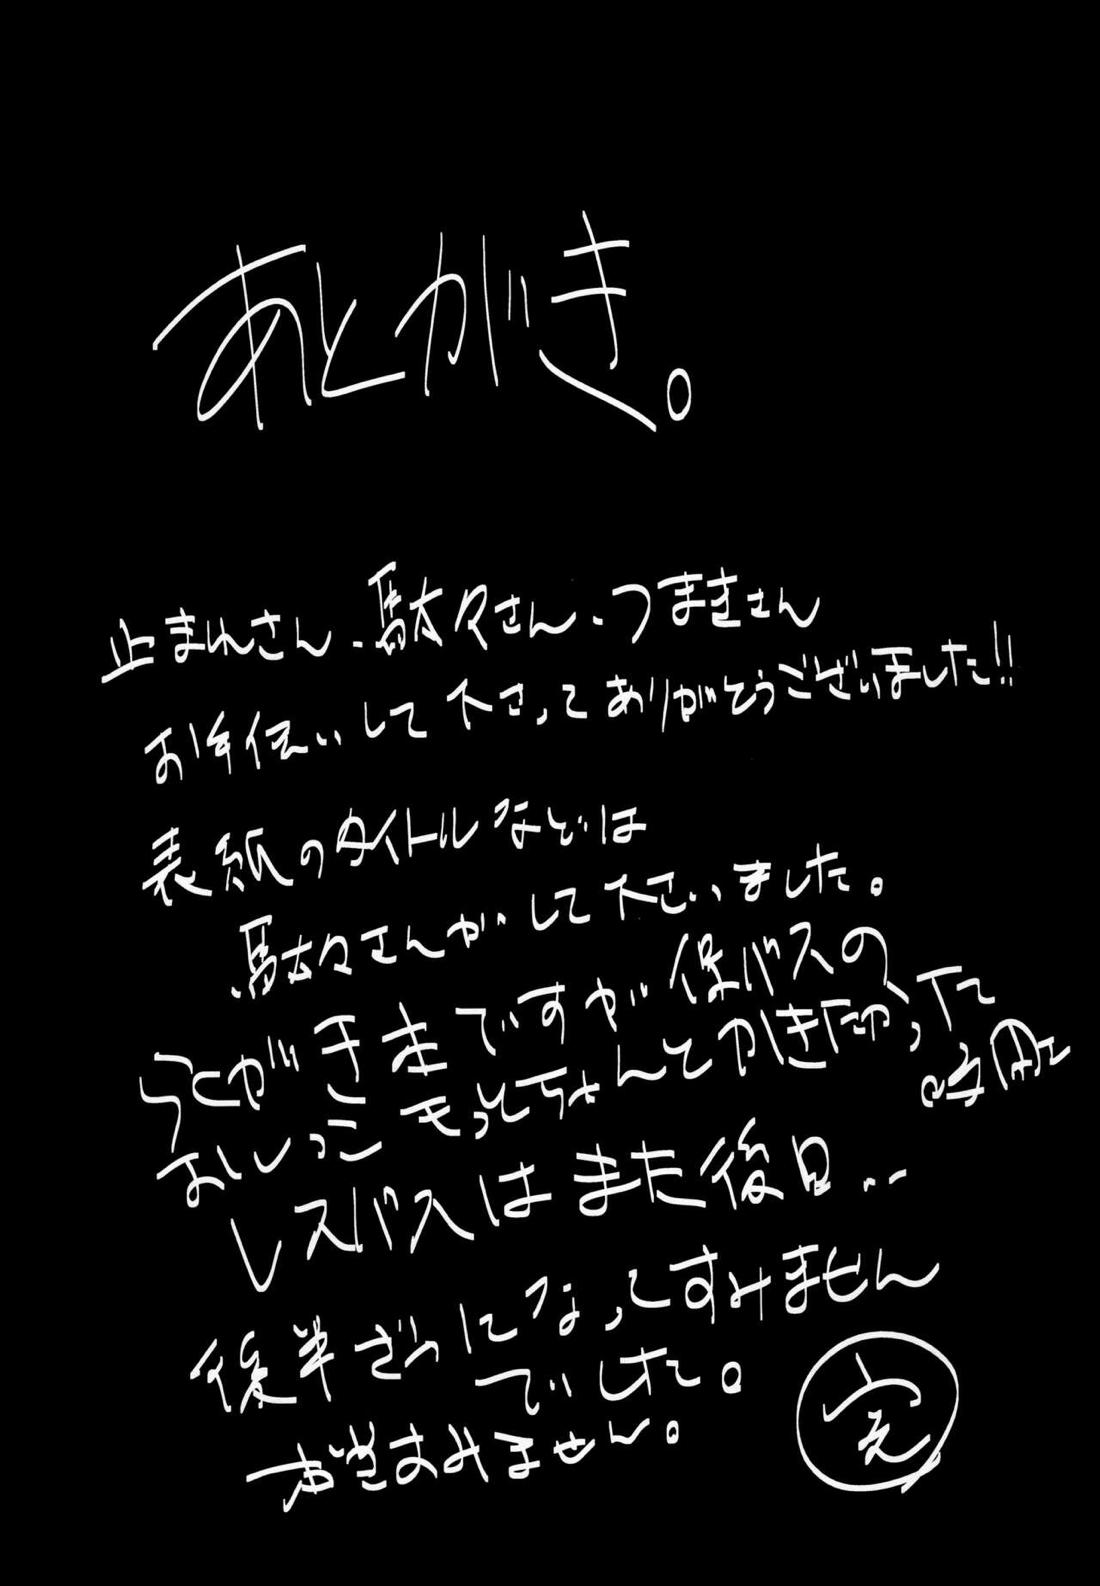 あとがき。
止まれさん、駄々さん、つまきさん
お手伝いして下さってありがとうございました!!
表紙のタイトルなどは
駄々さんがして下さいました。
らくがきまでですが保バスの
おしっこもっとちゃんとかきたかった
レスバスはまた後日‥
後半ざつになってすみません
でした。
本当すみません。
完